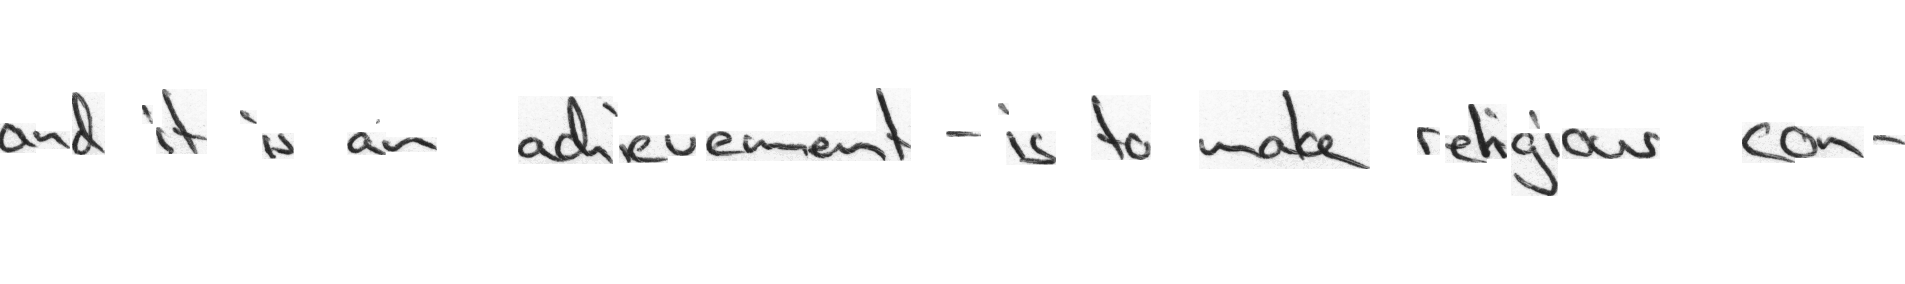 and it is an achievement - is to make religious con-